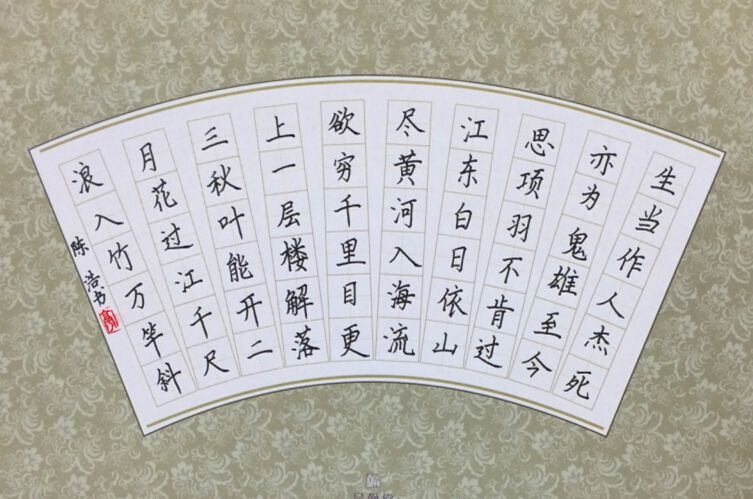 生当作人杰死
亦为鬼雄至今
思项羽不肯过
江东白日依山
尽黄河入海流
欲穷千里目更
上一层楼解落
三秋叶能开二
月花过江千尺
浪入竹万竿斜
陈浩书